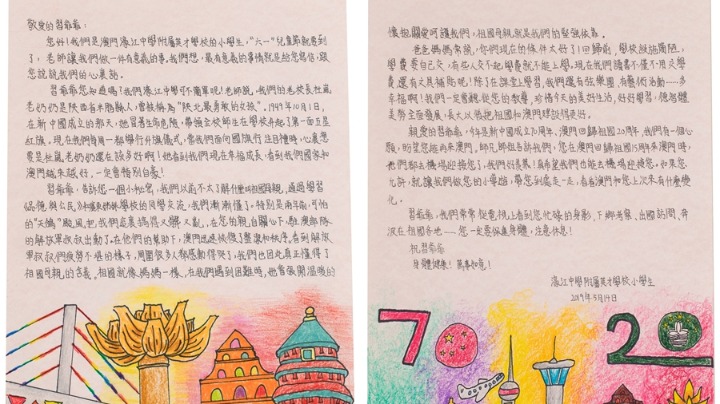 敬爱的習爺爺：
您好！我們是澳門濠江中學附屬英才學校的小學生，“六一”兒童節就要到
了，老師讓我們做一件有意義的事，我們想，最有意義的事情就是給您寫信，跟
您說說我們的心裏話。
習爺爺您知道嗎？我們濠江中學可不簡單呢！老師說，我們的老校長杜嵐
老奶奶是陝西省米脂縣人，曾被稱為“陝北最勇敢的女孩”。1949年10月1日，
在新中國成立的那天，她冒著生命危險，帶領全校師生在學校升起了第一面五星
紅旗。現在我們每周一都舉行升旗儀式，當我們面向國旗行注目禮時，心裏想
要是杜嵐老奶奶還在該多好啊！她看到我們現在幸福成長，看到我們國家和
澳門越來越好，一定會特别自豪！
習爺爺，告訴您一個小秘密，我們以前不太了解什麼叫祖國母親，通過學習
《品德與公民》和與姊妹學校的同學交流，我們漸漸懂了。特别是兩年前，可怕
的“天鴿”颱風，把我們家裏搞得又髒又亂，在您的親自關心下，駐澳部隊
的解放軍叔叔出動了。在他們的幫助下，澳門迅速恢復了整潔和秩序。看到解放
軍叔叔們疲勞不堪的樣子，周圍很多人都感動得哭了，我們也因此真正懂得了
祖國母親的含義。祖國就像媽媽一樣，在我們遇到困難時，她會張開溫暖的
懷抱關愛呵護我們，祖國母親就是我們的堅強依靠。
爸爸媽媽常說，你們現在的條件太好了！回歸前，學校設施簡陋，
學費要自己交，有些人交不起學費就不能上學，現在我們讀書不僅不用交學
費，還有文具補貼呢！除了在課堂上學習，我們還有弦樂團，有藝術活動……多
幸福啊！我們一定會聽從您的教導，珍惜今天的美好生活，好好學習，德智體
美勞全面發展，長大以後把祖國和澳門建設得更好。
親愛的習爺爺，今年是新中國成立70周年、澳門回歸祖國20周年，我們有一個心
願，盼望您能再來澳門。師兄師姐告訴我們，您在澳門回歸祖國15周年來澳門時，
他們都去機場迎接您了，我們好羨慕！真希望我們也能去機場迎接您。如果您
允許，就讓我們做您的小導遊，帶您到處走一走，看看澳門和您上次來有什麼變
化。
習爺爺，我們常常從電視上看到您忙碌的身影，下鄉考察、出國訪問，奔
波在祖國各地……您一定要保重身體，注意休息！
祝習爺爺
身體健康！萬事如意！
濠江中學附屬英才學校小學生
2019年5月14日
70 20